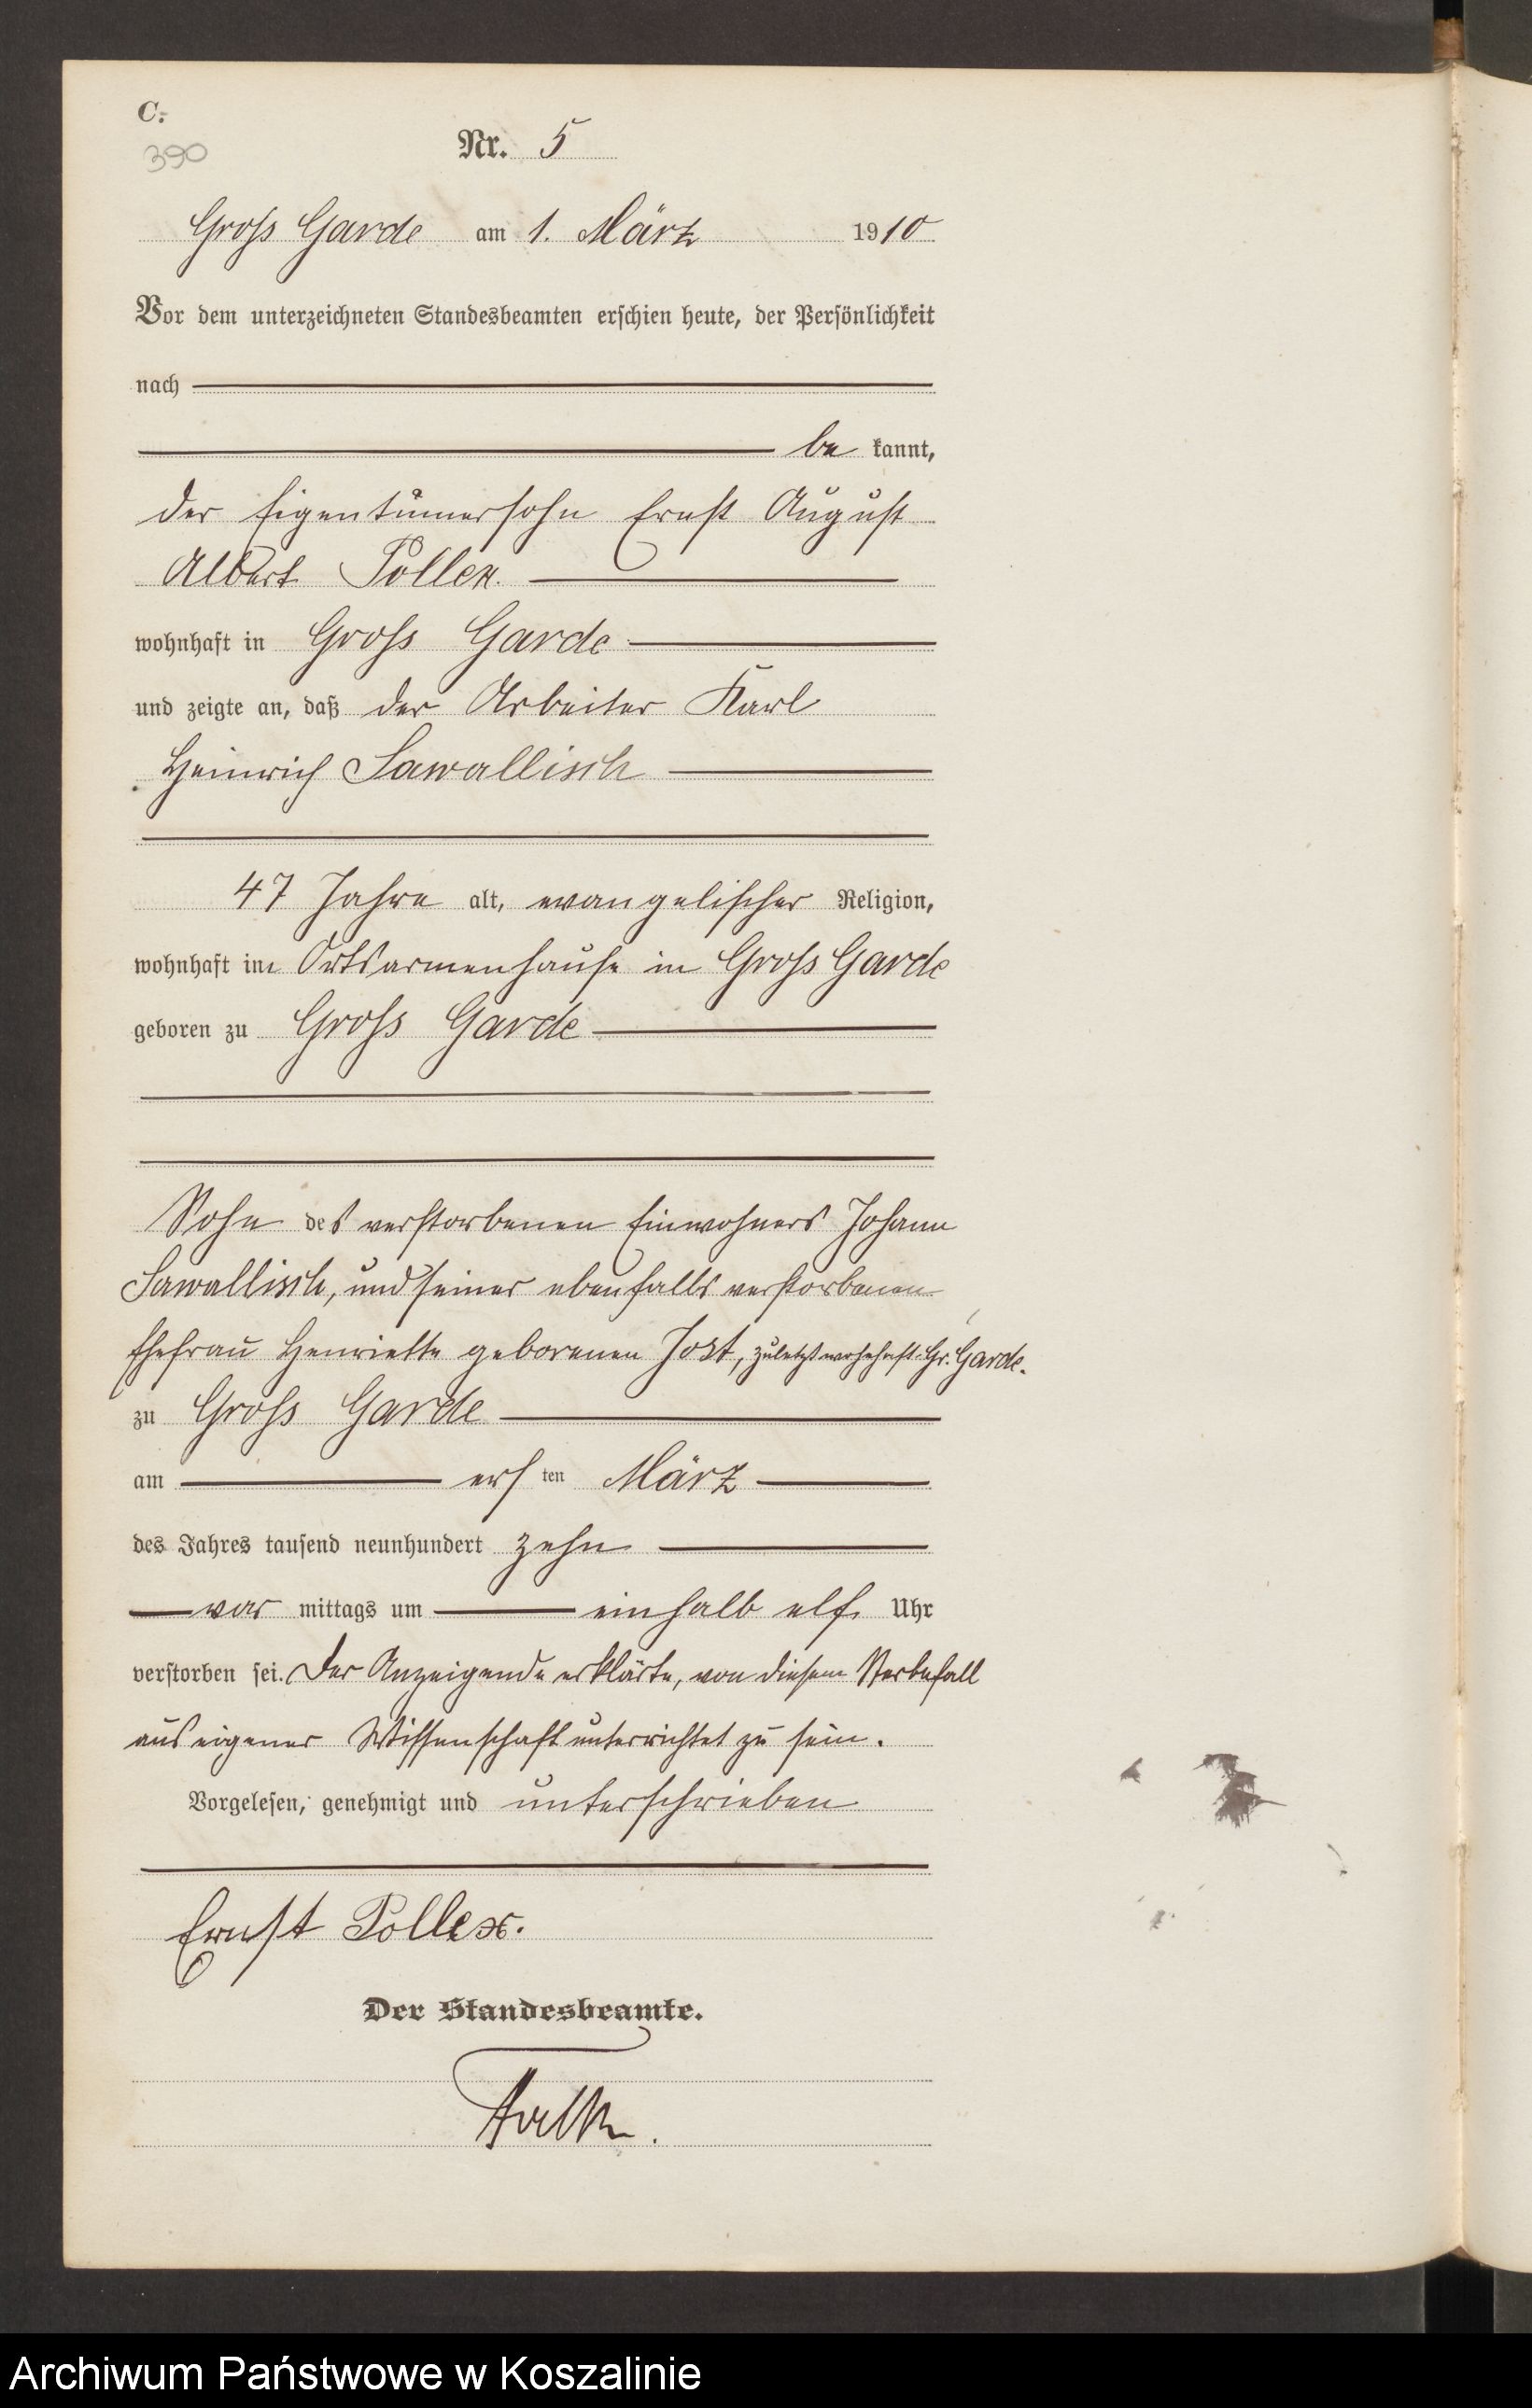 C.
390
Nr. 5
Gross Garde am 1. März 1910
Vor dem unterzeichneten Standesbeamten erschien heute, der Persönlichkeit
nach
be kannt,
der Eigentümersohn Ernst August
Albert Pollex.
wohnhaft in Gross Garde
und zeigte an, daß der Arbeiter Karl
Heinrich Sawallisch
47 Jahre alt, evangelischer Religion,
wohnhaft im Ortsarmenhause in Gross Garde
geboren zu Gross Garde
Sohn des verstorbenen Einwohners Johann
Sawallisch, und seiner ebenfalls verstorbenen
Ehefrau Henriette geborenen Jost, zuletzt wohnhaft Gr. Garde.
zu Gross Garde
am ersten März
des Jahres tausend neunhundert zehn
vor mittags um einhalb elf Uhr
verstorben sei. Der Anzeigende erklärte, von diesem Sterbefall
aus eigener Wissenschaft unterrichtet zu sein.
Vorgelesen, genehmigt und unterschrieben
Ernst Pollex.
Der Standesbeamte.
Falk.
Archiwum Państwowe w Koszalinie